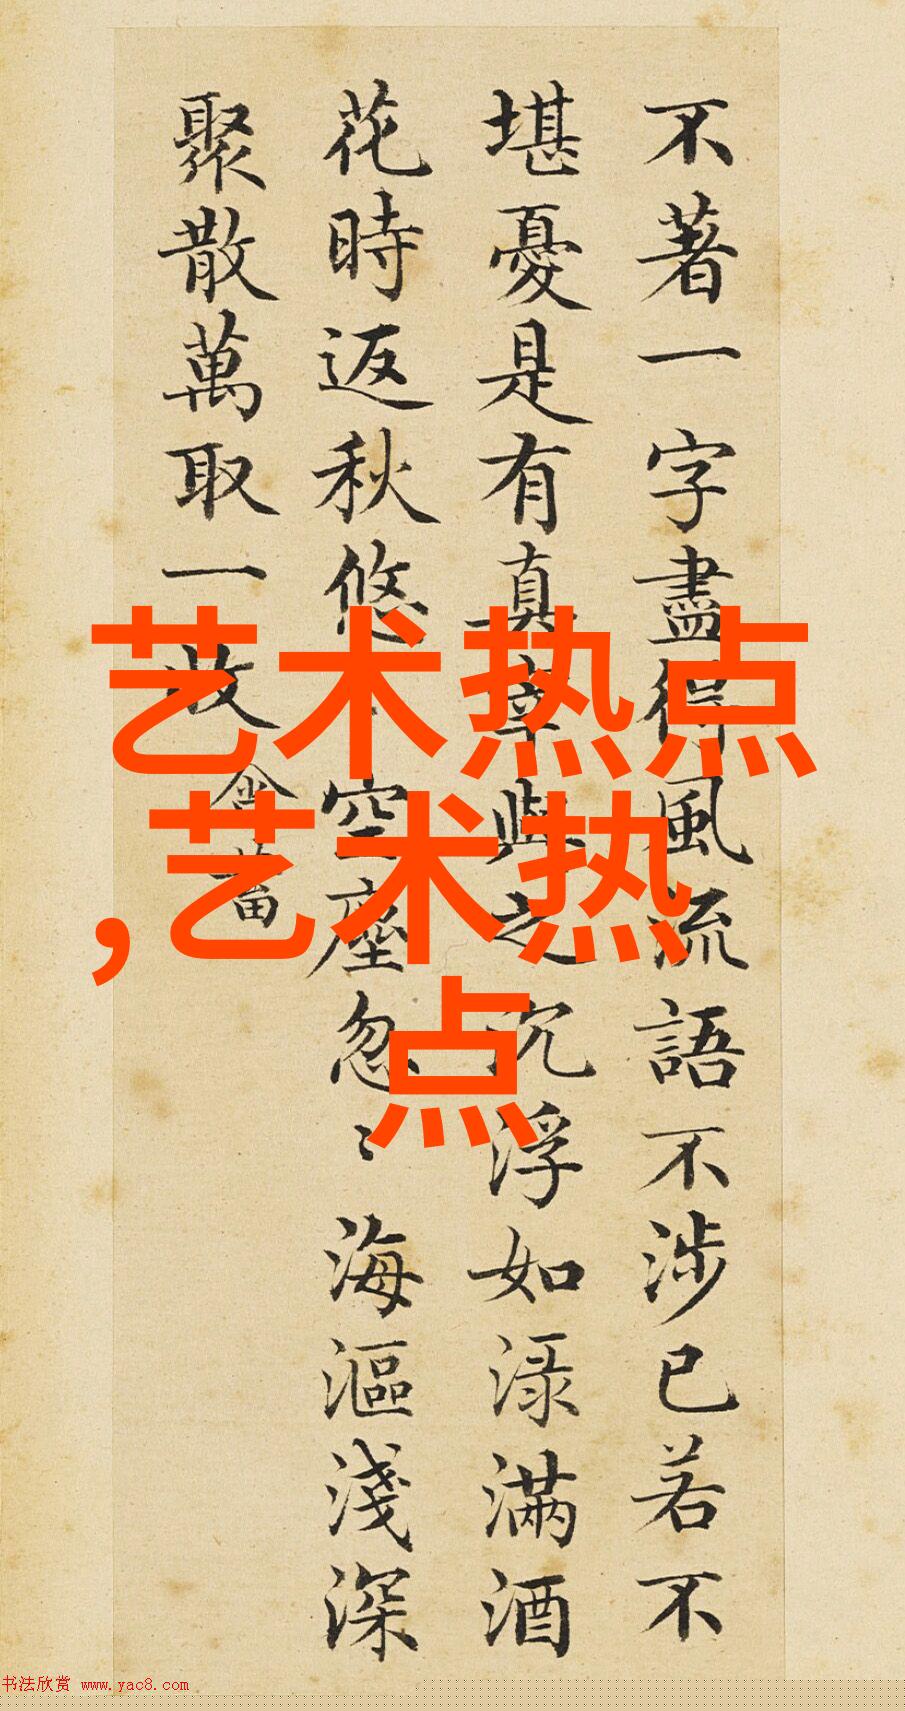 不著一字盡得風流語不涉已若不
堪憂是有真宰與之沉浮如渌滿酒
花時返秋悠〻空座忽〻海漚淺深
聚散萬取一收
艺术热点
,艺术热
点
书法欣赏 www.yac8.com